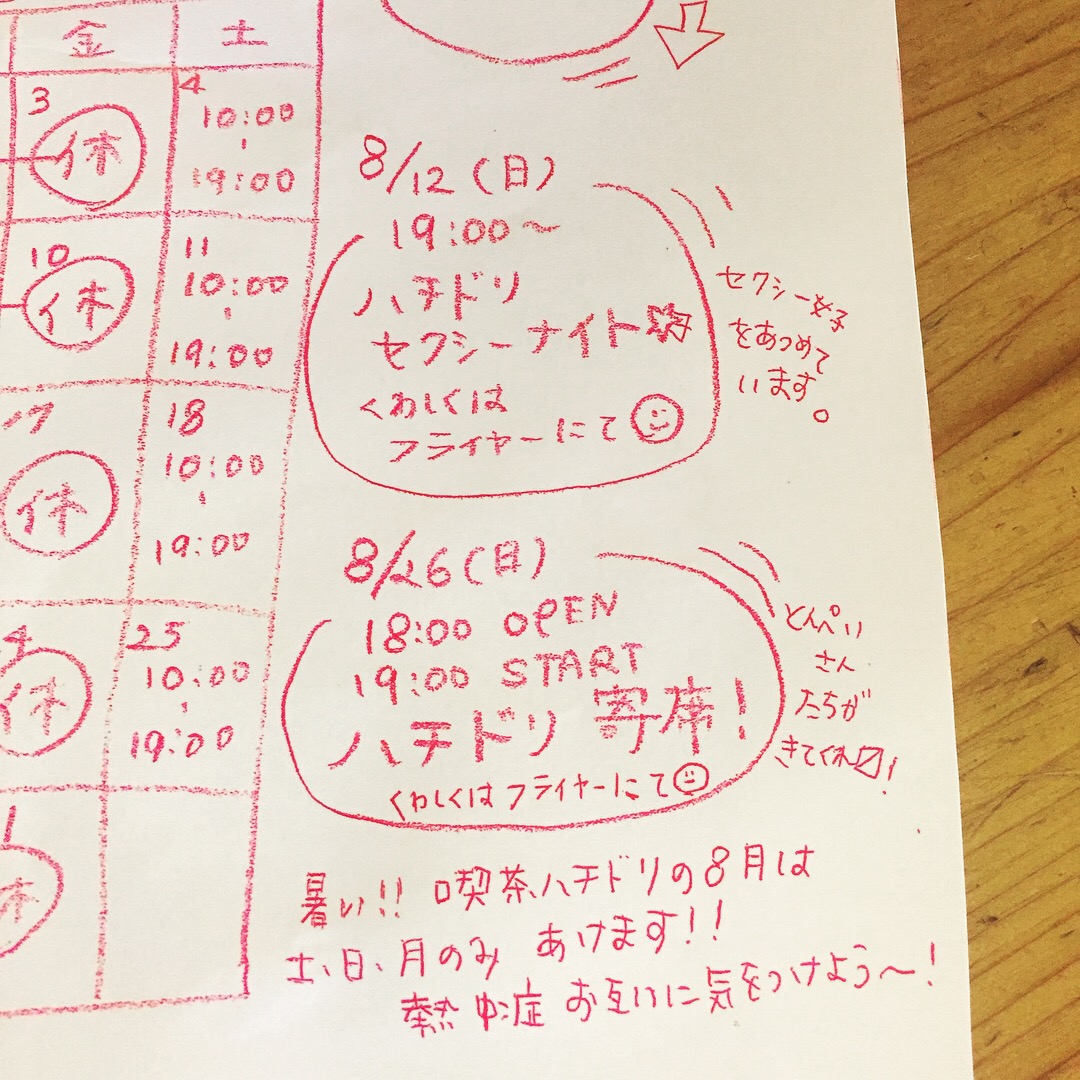 金 土
3 休
4
10:00
-
19:00
10 休
11
10:00
-
19:00
17 休
18
10:00
-
19:00
休
25
10:00
-
19:00
休
8/12(日)
19:00〜
ハチドリ
セクシーナイト☆
くわしくは
フライヤーにて☺
セクシー女子
をあつめて
います。
8/26(日)
18:00 OPEN
19:00 START
ハチドリ 寄席!
くわしくはフライヤーにて☺
とんぺい
さん
たちが
きてくれ〼!
暑い!! 喫茶ハチドリの8月は
土、日、月のみ あけます!!
熱中症 お互いに気をつけよう〜!